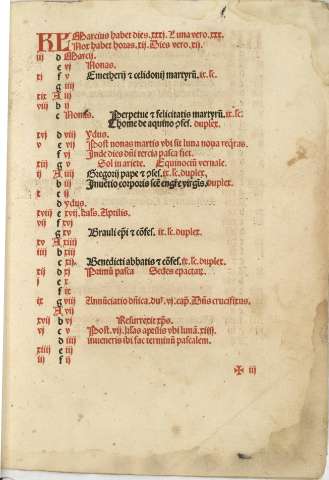 KL Marcius habet dies .xxxj. Luna vero .xxx.
Nox habet horas .xij. Dies vero .xij.
iij d Marcij.
e vj Nonas.
xj f v Emetherij ⁊ celidonij martyrū .ix.lc.
g iiij
xix A iij
viij b ij
c Nonas. Perpetue ⁊ felicitatis martyrū .ix.lc.
Thome de aquino ↄfes. duplex.
xvj d viij Ydus.
v e vij Post nonas martis vbi sit luna noua req̄ras.
f vj Inde dies dn̄i tercia pasca fiet.
xiij g v Sol in ariete. Equinoctiū vernale.
ij A iiij Gregorij pape ⁊ ↄfes. ix.lc. duplex.
b iij Inuētio corporis scē engr̄e vir̄gis. duplex.
x c ij
d ydus.
xviij e xvij kals. Aprilis.
vij f xvj
g xv Brauli ep̄i ⁊ cōfes. ix.lc. duplex.
xv A xiiij
iiij b xiij
c xij. Benedicti abbatis ⁊ cōfes. ix.lc. duplex.
xij d xj Primū pasca Sedes epactaꝝ.
j e x
f ix
ix g viij Annūciatio dn̄ica. du. vj. cap̄. Dn̄s crucifixus.
A vij
xvij b vj Resurrexit xp̄s.
vj c v Post .vij. kl̄as aprilis vbi lunā .xiiij.
d iiij inueneris ibi fac terminū pascalem.
xiiij e iij
iij f ij
✠ iij